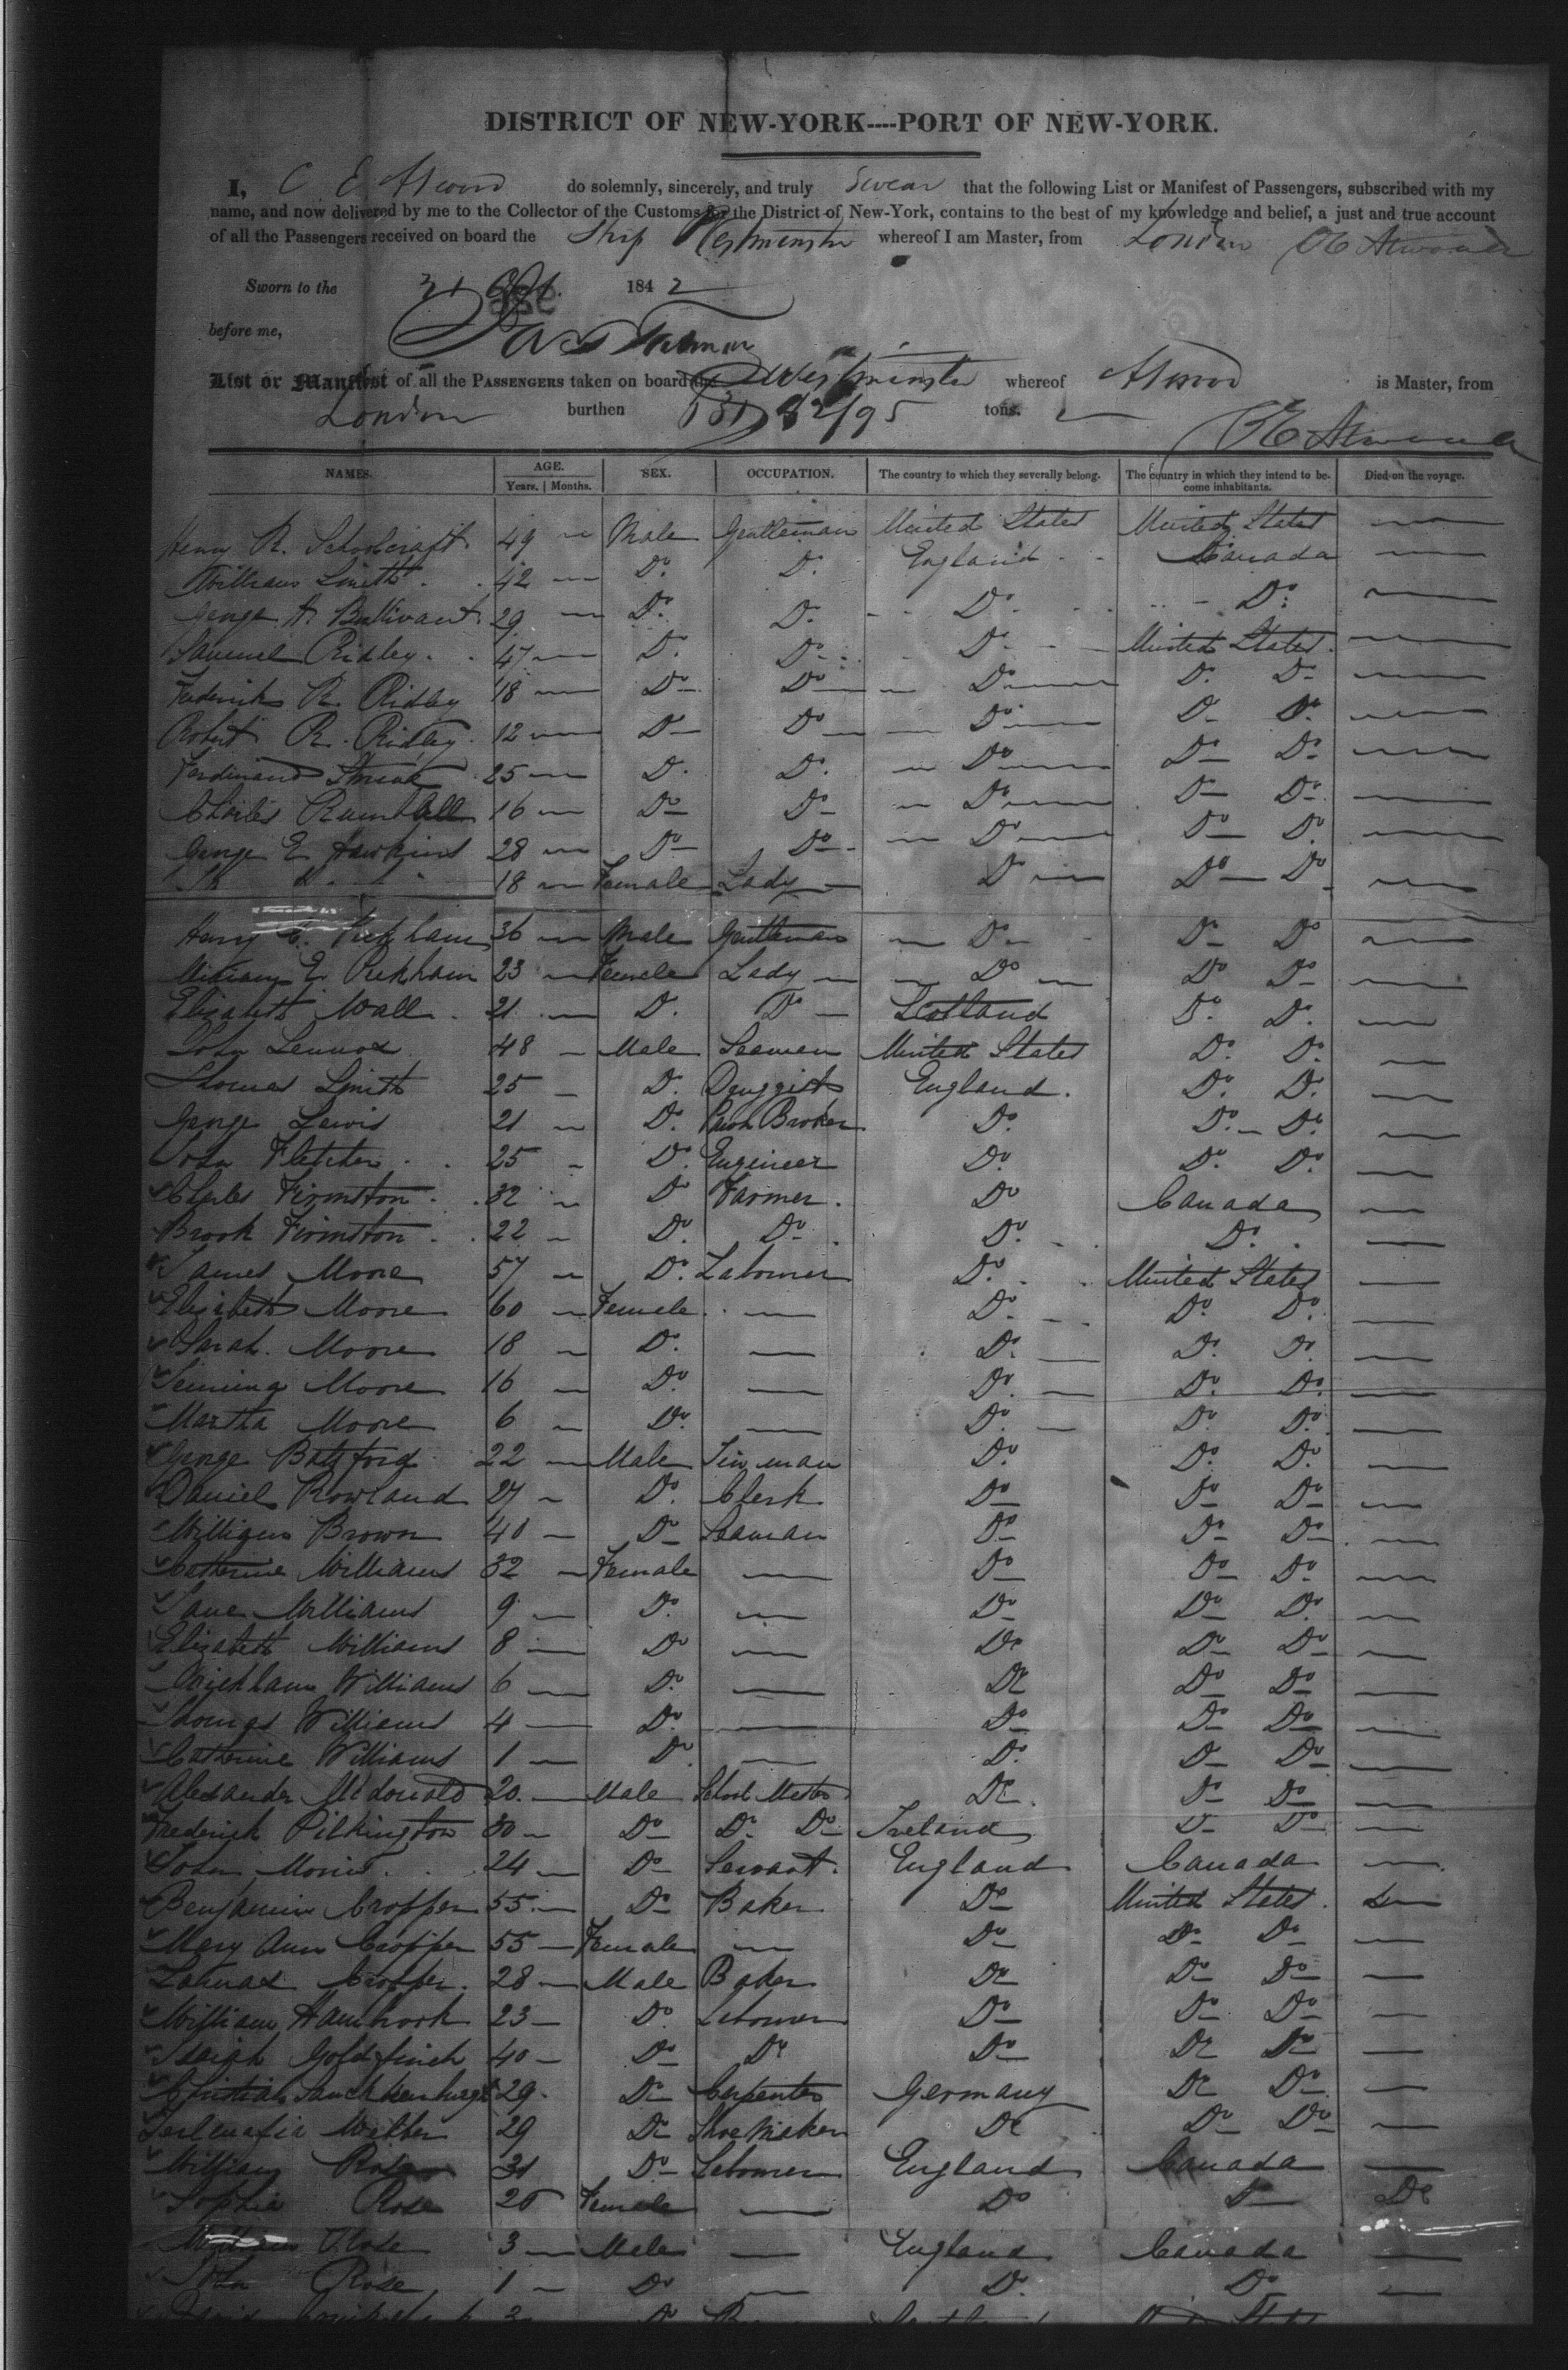 DISTRICT OF NEW-YORK----PORT OF NEW-YORK.
I, C E Atwood do solemnly, sincerely, and truly Swear that the following List or Manifest of Passengers, subscribed with my
name, and now delivered by me to the Collector of the Customs for the District of New-York, contains to the best of my knowledge and belief, a just and true account
of all the Passengers received on board the Ship Westminster whereof I am Master, from London Atwood
Sworn to the 31 1842
before me,
List or Manifest of all the PASSENGERS taken on board the Westminster whereof Atwood is Master, from
London burthen tons. Atwood
NAMES. AGE. SEX. OCCUPATION. The country to which they severally belong. The country in which they intend to be- Died on the voyage.
Years. | Months. come inhabitants.
Henry R. Schoolcraft 49 — Male Gentleman United States United States —
William Smith 42 — Do. Do. England Canada —
George A. Bullivant 29 — Do. Do. Do. Do. —
Samuel Ridley 47 — Do. Do. Do. United States —
Frederick R. Ridley 18 — Do. Do. Do. Do. Do. —
Robert R. Ridley 12 — Do. Do. Do. Do. Do. —
Ferdinand 25 — Do. Do. Do. Do. Do. —
Charles Rumball 16 — Do. Do. Do. Do. Do. —
George E Hawkins 28 — Do. Do. Do. Do. Do. —
18 — Female Lady Do. Do. Do. —
Henry Pickham 36 — Male Gentleman Do. Do. Do. —
E. Pickham 23 — Female Lady Do. Do. Do. —
Elizabeth Wall 21 — Do. Do. Scotland Do. Do. —
John Lennox 48 — Male Seaman United States Do. Do. —
Thomas Smith 25 — Do. Druggist England Do. Do. —
George Lewis 21 — Do. Pawn Broker Do. Do. Do. —
John Fletcher 25 — Do. Engineer Do. Do. Do. —
Charles Firmston 32 — Do. Farmer Do. Canada —
Brook Firmston 22 — Do. Do. Do. Do. —
James Moore 57 — Do. Labourer Do. United States —
Elizabeth Moore 60 — Female — Do. Do. Do. —
Sarah Moore 18 — Do. — Do. Do. Do. —
Moore 16 — Do. — Do. Do. Do. —
Martha Moore 6 — Do. — Do. Do. Do. —
George Batsford 22 — Male Tin man Do. Do. Do. —
Daniel Rowland 27 — Do. Clerk Do. Do. Do. —
William Brown 40 — Do. Seaman Do. Do. Do. —
Catherine Williams 32 — Female — Do. Do. Do. —
Jane Williams 9 — Do. — Do. Do. Do. —
Elizabeth Williams 8 — Do. — Do. Do. Do. —
Williams 6 — Do. — Do. Do. Do. —
Thomas Williams 4 — Do. — Do. Do. Do. —
Catherine Williams 1 — Do. — Do. Do. Do. —
Alexander McDonald 20 — Male School Master Do. Do. Do. —
Frederick Pilkington 30 — Do. Do. Do. Ireland Do. Do. —
John Morris 24 — Do. Servant England Canada —
Benjamin Cropper 55 — Do. Baker Do. United States —
Mary Ann Cropper 55 — Female — Do. Do. Do. —
Cropper 28 — Male Baker Do. Do. Do. —
William Hambrook 23 — Do. Labourer Do. Do. Do. —
Isaiah Goldfinch 40 — Do. Do. Do. Do. Do. —
Christian 29 Do. Carpenter Germany Do. Do. —
29 Do. Shoe Maker Do. Do. Do. —
William Rose 31 Do. Labourer England Canada —
Sophia Rose 26 Female — Do. Do. Do.
William Rose 3 — Male — England Canada —
John Rose 1 — Do. — Do. Do. —